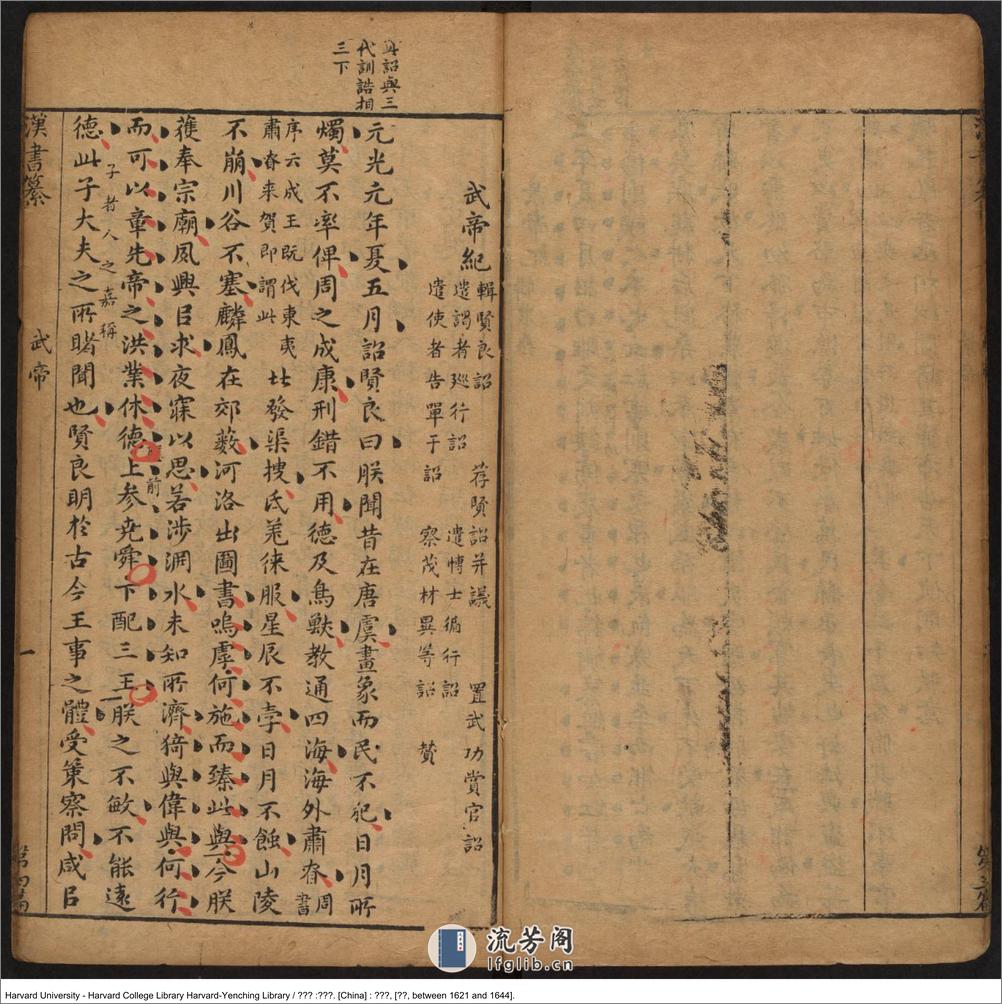 此詔與三
代訓誥相
三下
武帝紀
輯賢良詔
荐賢詔并議
置武功賞官詔
遣謁者廵行詔
遣愽士循行詔
遣使者告單于詔
察茂材異等詔
贊
元光元年夏五月詔賢良曰朕聞昔在唐虞畫象而民不犯日月所
燭莫不率俾周之成康刑錯不用德及鳥獸教通四海海外肅眘周書
序云成王既伐東夷
肅眘来賀即謂此
北發渠搜氐羌徠服星辰不孛日月不蝕山陵
不崩川谷不塞麟鳳在郊藪河洛出圖書嗚虖何施而臻此與今朕
獲奉宗廟夙興㠯求夜寐以思若涉淵水未知所濟猗與偉與何行
而可以章先帝之洪業休德上参尭舜下配三王朕之不敏不能逺
前
德此子大夫之所睹聞也賢良明於古今王事之體受策察問咸㠯
子者人之嘉稱
漢書纂
武帝
一
流芳阁
lfglib.cn
Harvard University - Harvard College Library Harvard-Yenching Library / ??? :???. [China] : ???, [??, between 1621 and 1644].